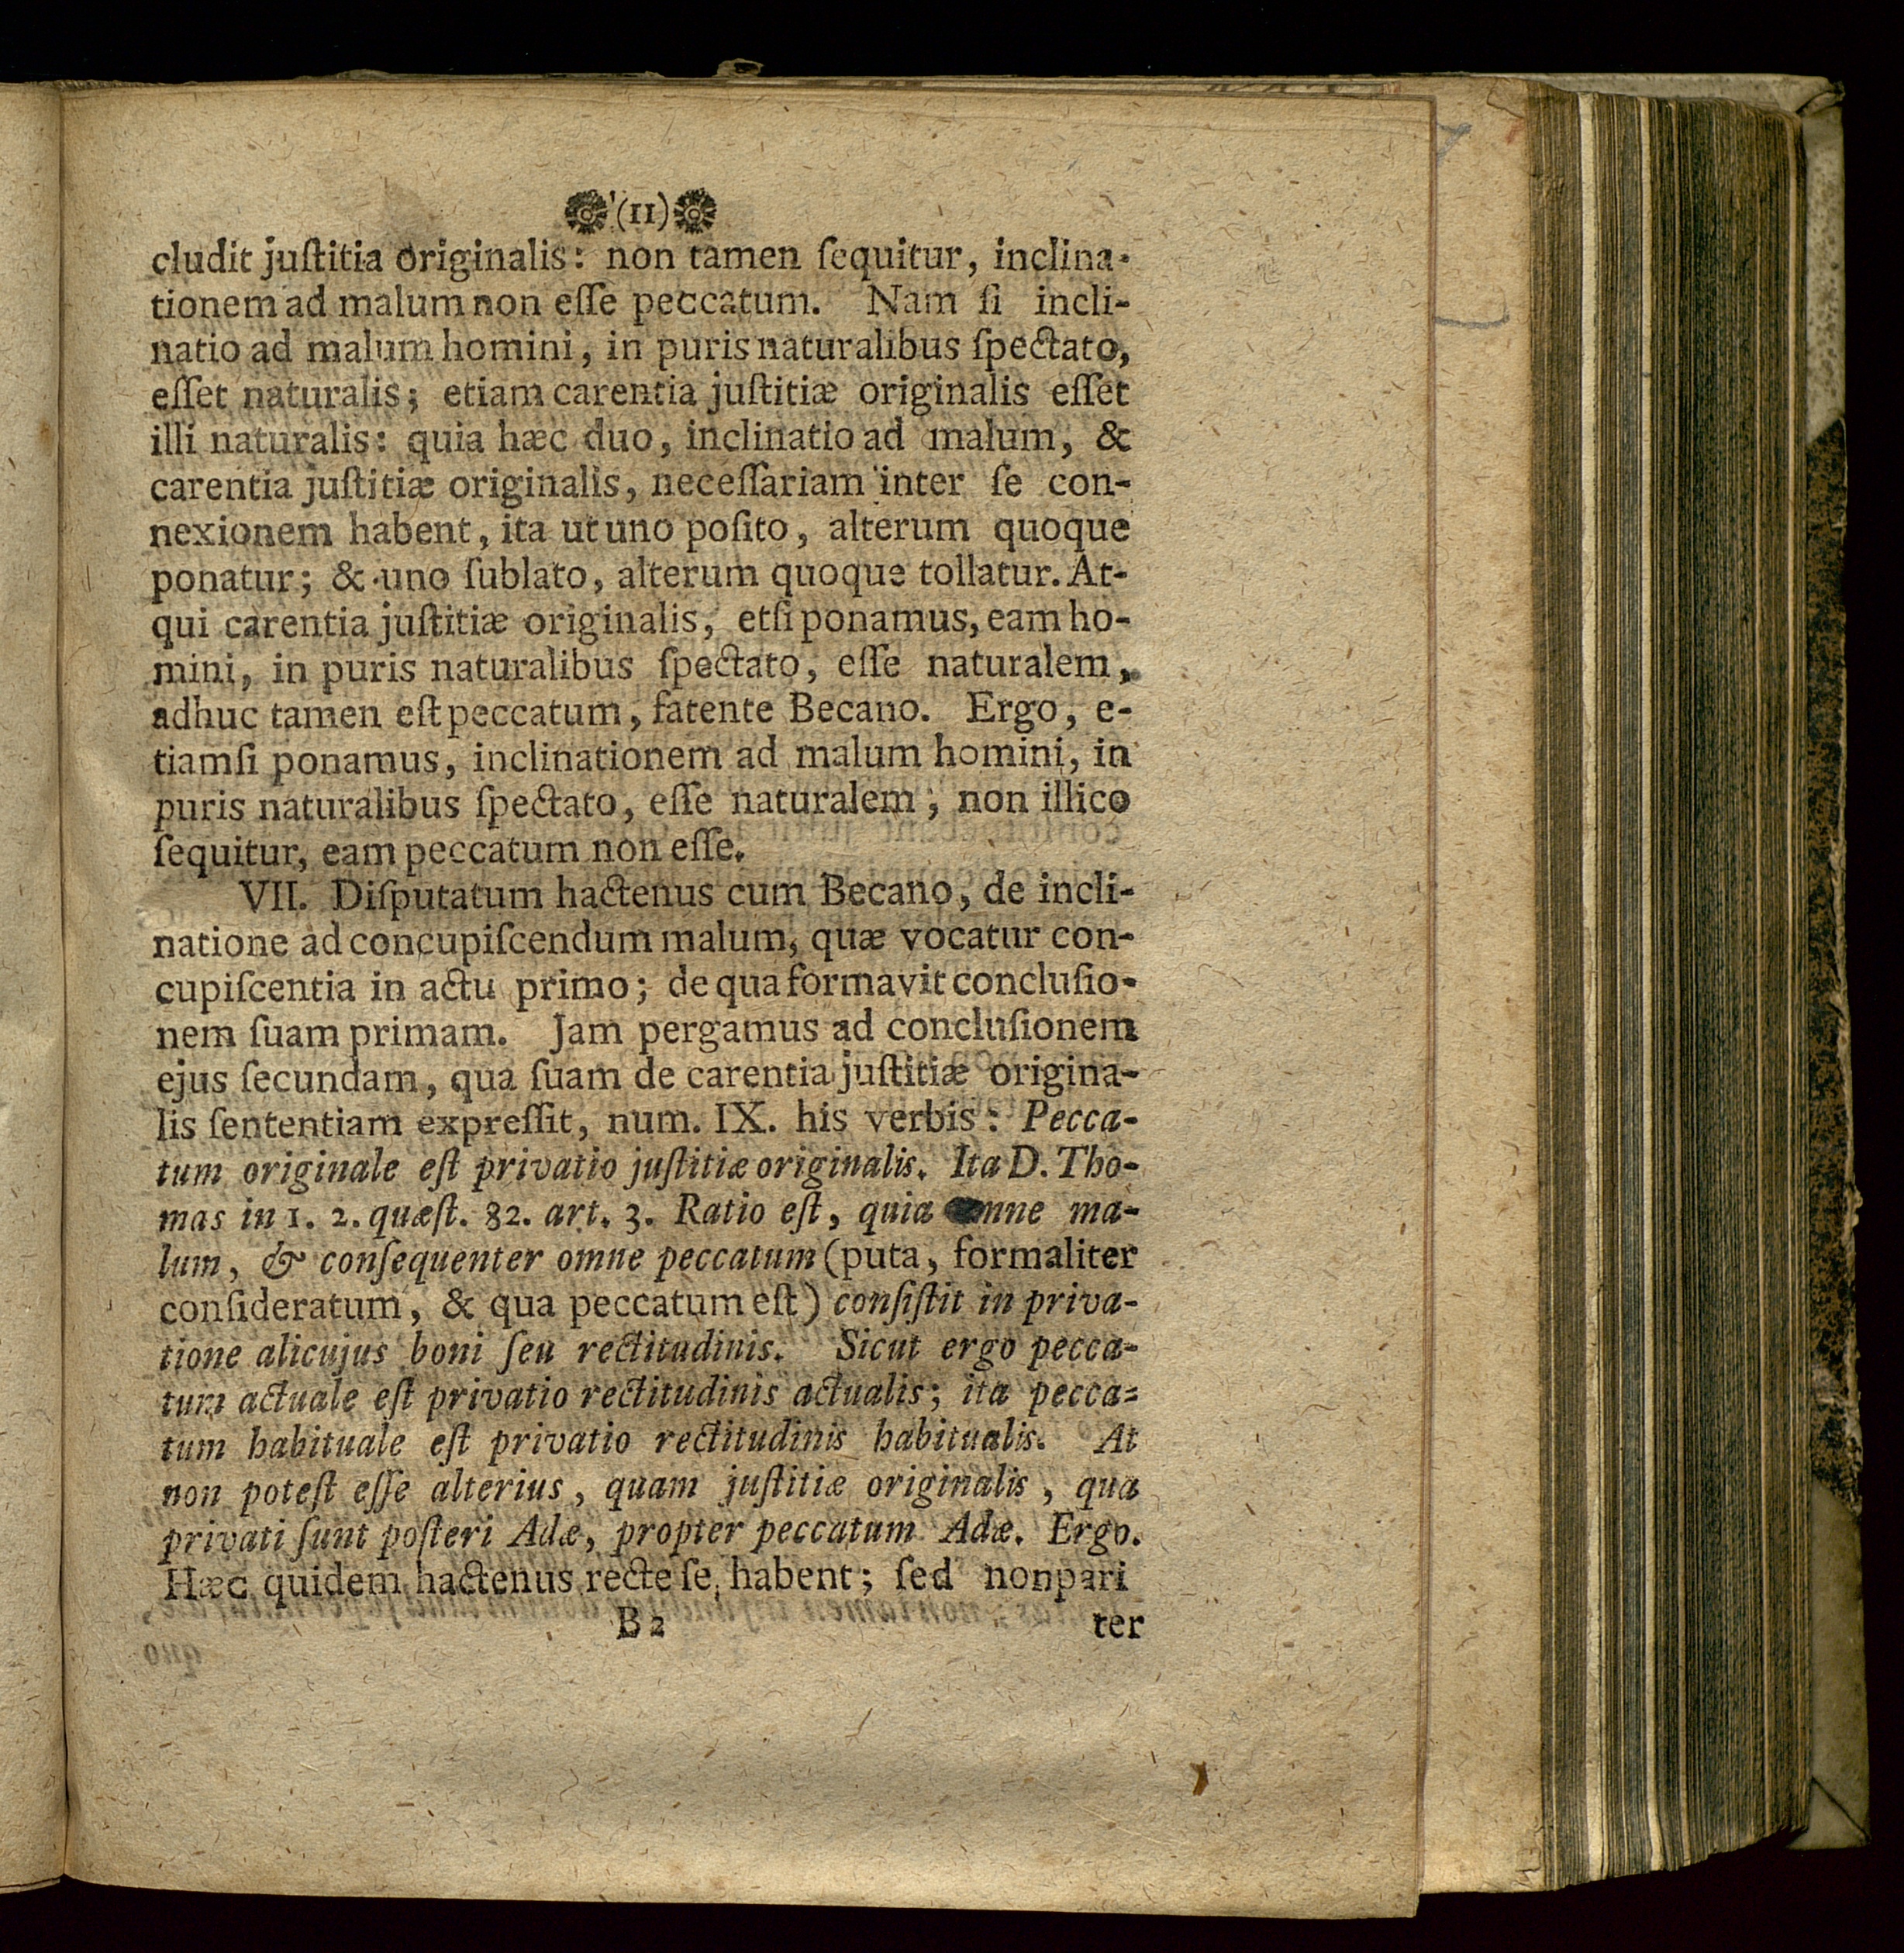 (11)
cludit juſtitia originalis: non tamen ſequitur, inclina-
tionem ad malum non eſſe peccatum. Nam ſi incli-
natio ad malum homini, in puris naturalibus ſpectato,
eſſet naturalis; etiam carentia juſtitiæ originalis eſſet
illi naturalis: quia hæc duo, inclinatio ad malum, &
carentia juſtitiæ originalis, neceſſariam inter ſe con-
nexionem habent, ita ut uno poſito, alterum quoque
ponatur; & uno ſublato, alterum quoque tollatur. At-
qui carentia juſtitiæ originalis, etſi ponamus, eam ho-
mini, in puris naturalibus ſpectato, eſſe naturalem,
adhuc tamen eſt peccatum, fatente Becano. Ergo, e-
tiamſi ponamus, inclinationem ad malum homini, in
puris naturalibus ſpectato, eſſe naturalem; non illico
ſequitur, eam peccatum non eſſe.
VII. Diſputatum hactenus cum Becano, de incli-
natione ad concupiſcendum malum, quæ vocatur con-
cupiſcentia in actu primo; de qua formavit concluſio-
nem ſuam primam. Jam pergamus ad concluſionem
ejus ſecundam, qua ſuam de carentia juſtitiæ origina-
lis ſententiam expreſſit, num. IX. his verbis: Pecca-
tum originale eſt privatio juſtitiæ originalis. Ita D. Tho-
mas in 1. 2. quæſt. 82. art. 3. Ratio eſt, quia omne ma-
lum, & conſequenter omne peccatum (puta, formaliter
conſideratum, & qua peccatum eſt) conſiſtit in priva-
tione alicujus boni ſeu rectitudinis. Sicut ergo pecca-
tum actuale eſt privatio rectitudinis actualis; ita pecca-
tum habituale eſt privatio rectitudinis habitualis. At
non poteſt eſſe alterius, quam juſtitiæ originalis, qua
privati ſunt poſteri Adæ, propter peccatum Adæ. Ergo.
Hæc quidem hactenus recte ſe habent; ſed non pari
B 2 ter